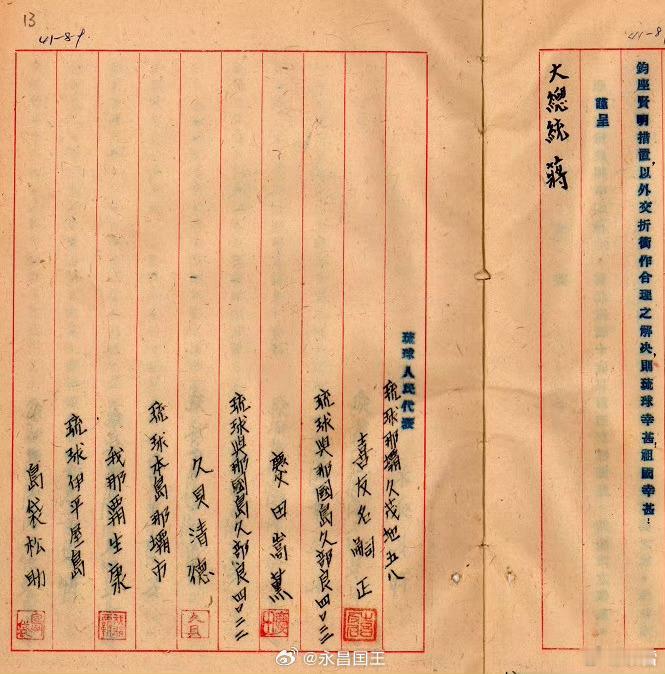 41-8
鈞座賢明措置,以外交折衝作合理之解决,則琉球幸甚!祖國幸甚!
謹呈
大總統 蔣
琉球人民代表
琉球那霸久茂地五八
喜友名嗣正
琉球與那國島久部良四〇二三
慶田嵩薰
琉球與那國島久部良四〇二二
久貝清德
琉球本島那壩市
我那霸生康
琉球伊平屋島
島袋松助
13
41-89.
久貝
@永昌国王